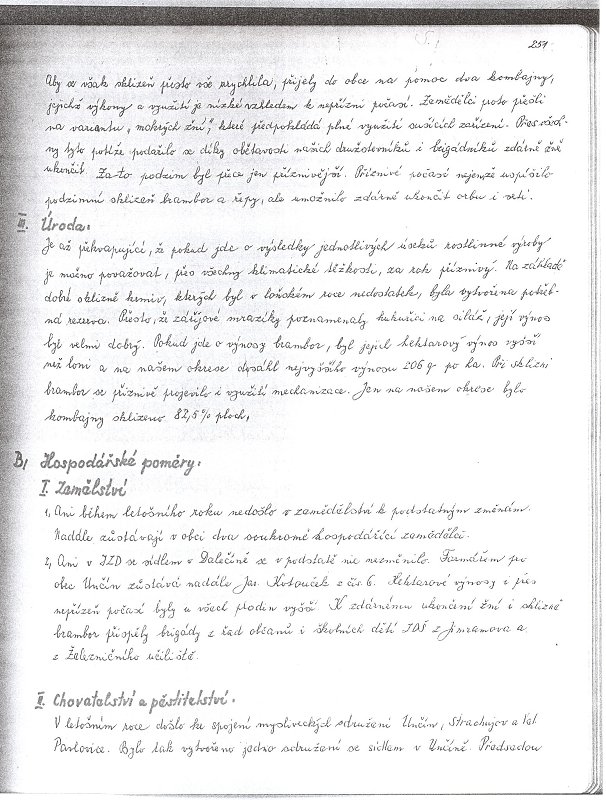 251
Aby se však sklizeň přesto vše urychlila, přijely do obce na pomoc dva kombajny,
jejichž výkony a využití je nízké vzhledem k nepřízni počasí. Zemědělci proto přešli
na variantu „mokrých žní", které předpokládá plné využití sušících zařízení. Přes všech-
ny tyto potíže podařilo se díky obětavosti našich družstevníků i brigádníků zdárně žně
ukončit. Za-to podzim byl přece jen příznivější. Příznivé počasí nejenže uspíšilo
podzimní sklizeň brambor a řepy, ale umožnilo zdárně ukončit orbu i setí.
III. Úroda.
Je až překvapující, že pokud jde o výsledky jednotlivých úseků rostlinné výroby
je možno považovat, přes všechny klimatické těžkosti, za rok příznivý. Na základě
dobré sklizně krmiv, kterých byl v loňském roce nedostatek, byla vytvořena potřeb-
ná rezerva. Přesto, že zářijové mrazíky poznamenaly kukuřici na siláž, její výnos
byl velmi dobrý. Pokud jde o výnosy brambor, byl jejich hektarový výnos vyšší
než loni a na našem okrese dosáhl nejvyššího výnosu 206 q po ha. Při sklizni
brambor se příznivě projevilo i využití mechanizace. Jen na našem okrese bylo
kombajny sklizeno 82,5% ploch.
B/ Hospodářské poměry.
I. Zemělství
1, Ani během letošního roku nedošlo v zemědělství k podstatným změnám.
Nadále zůstávají v obci dva soukromě hospodařící zemědělci.
2, Ani v JZD se sídlem v Dalečíně se v podstatě nic nezměnilo. Farmářem pro
obec Unčín zůstává nadále Jar. z čís. 6. Hektarové výnosy i přes
nepřízeň počasí byly u všech plodin vyšší. K zdárnému ukončení žní i sklizně
brambor přispěly brigády z řad občanů i školních dětí ZDŠ z Jimramova a
z Železničního učiliště.
II. Chovatelství a pěstitelství.
V letošním roce došlo ke spojení mysliveckých sdružení Unčín, Strachujov a Vel.
Pavlovice. Bylo tak vytvořeno jedno sdružení se sídlem v Unčíně. Předsedou